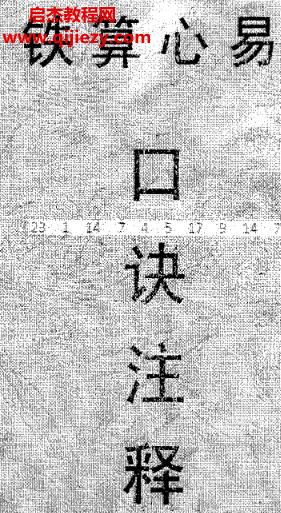 启杰教程网
www.qijiezy.com
铁算心易
口
23 1 14 7 4 5 17 9 14 7
诀
注
释